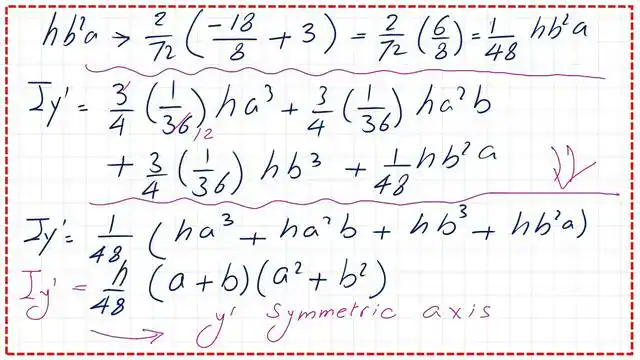 hb²a → 2/72 (-18/8 + 3) = 2/72 (6/8) = 1/48 hb²a
Iy' = 3/4 (1/36) ha³ + 3/4 (1/36) ha²b
12
+ 3/4 (1/36) hb³ + 1/48 hb²a
Iy' = 1/48 (ha³ + ha²b + hb³ + hb²a)
Iy' = h/48 (a+b)(a²+b²)
y' symmetric axis